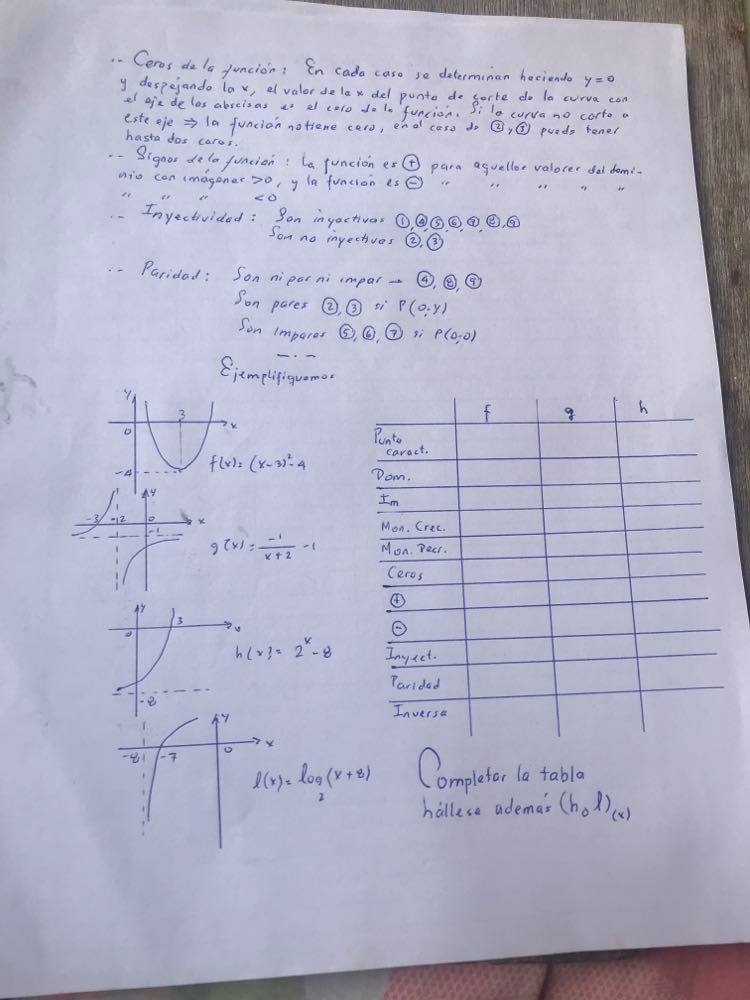 .- Ceros de la función: En cada caso se determinan haciendo y=0
y despejando la x, el valor de la x del punto de corte de la curva con
el eje de las abscisas es el cero de la función. Si la curva no corta a
este eje ⇒ la función no tiene cero, en el caso de ② y ③ puede tener
hasta dos ceros.
.- Signos de la función: La función es ⊕ para aquellos valores del domi-
nio con imágenes >0, y la función es ⊖ " " " " "
" " " <0
.- Inyectividad: Son inyectivas ①,④,⑤,⑥,⑦,⑧,⑨
Son no inyectivas ②,③
.- Paridad: Son ni par ni impar → ④,⑧,⑨
Son pares ②,③ si P(0;y)
Son impares ⑤,⑥,⑦ si P(0;0)
—.—
Ejemplifiquemos
y
3
0
x
-4
f(x)=(x-3)²-4
y
-3
-2
0
x
-1
g(x)= -1/(x+2) -1
y
0
3
x
h(x)= 2^x -8
-8
y
-8
-7
0
x
l(x)= log₂(x+8)
f g h
Punto
caract.
Dom.
Im
Mon. Crec.
Mon. Decr.
Ceros
⊕
⊖
Inyect.
Paridad
Inversa
Completar la tabla
hállese además (h∘l)(x)